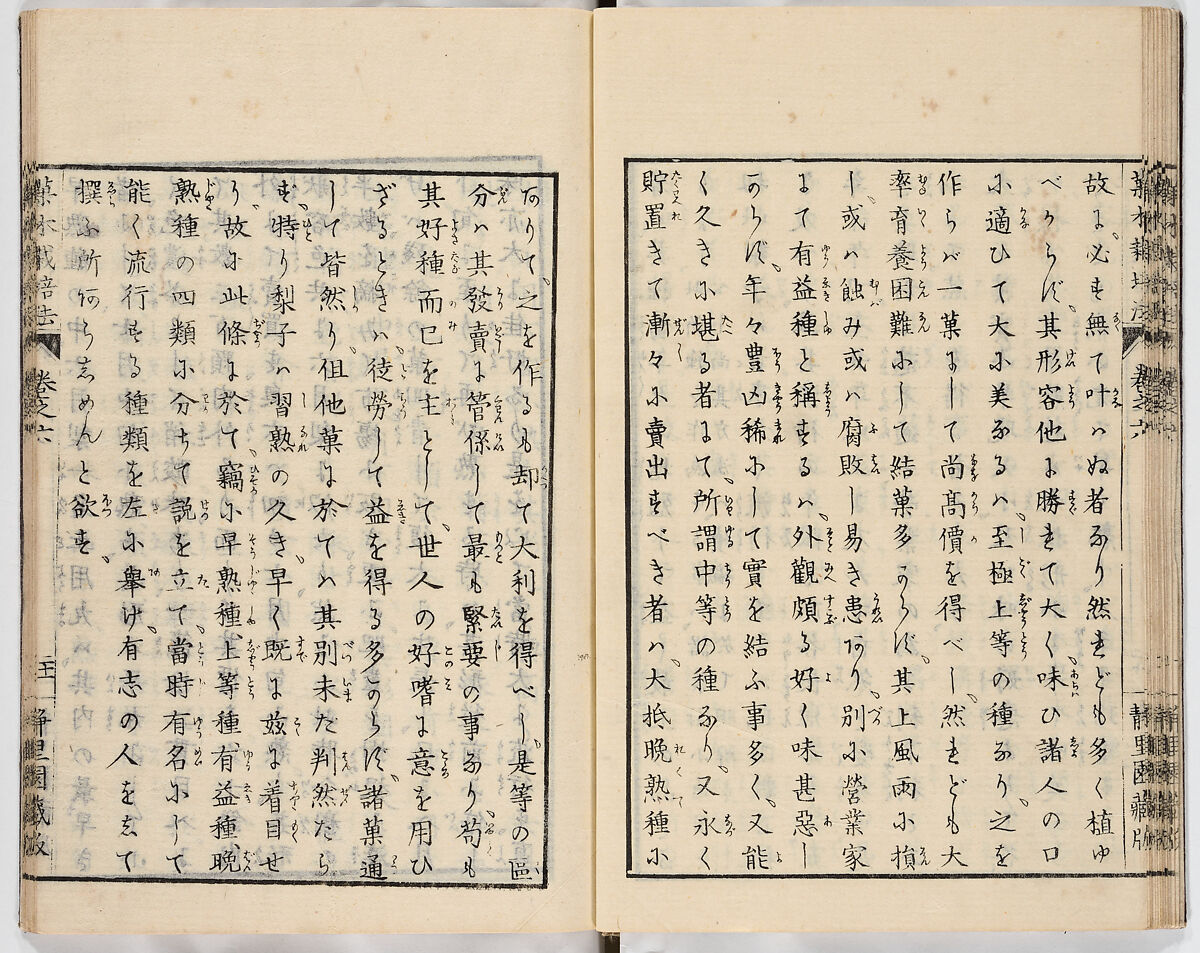 故に必ず無て叶ハぬ者なり然れども多く植ゆ
べからず其形容他に勝れて大く味ひ諸人の口
に適ひて大に美なるハ至極上等の種なり之を
作らバ一菓にして尚高價を得べし然れども大
率育養困難にして結菓多からず其上風雨に損
し或ハ蝕み或ハ腐敗し易き患あり別に營業家
にて有益種と稱するハ外觀頗る好く味甚惡し
からず年々豊凶稀にして實を結ふ事多く又能
く久きに堪る者にて所謂中等の種なり又永く
貯置きて漸々に賣出すべき者ハ大抵晩熟種に
菓木栽培法 卷之六 静里園藏版
ありて之を作るも却て大利を得べし是等の區
分ハ其發賣に管係して最も緊要の事なり苟も
其好種而已を主として世人の好嗜に意を用ひ
ざるときハ徒勞して益を得る多からず諸菓通
して皆然り但他菓に於てハ其別未だ判然たら
ず時り梨子ハ習熟の久き早く既に玆に着目せ
り故に此條に於て竊に早熟種上等種有益種晩
熟種の四類に分ちて説を立て當時有名にして
能く流行する種類を左に擧け有志の人をして
撰ふ所あらしめんと欲す
菓木栽培法 卷之六 静里園藏版